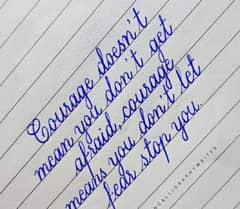 Courage doesn't
mean you don't get
afraid, courage
means you don't let
fear stop you.